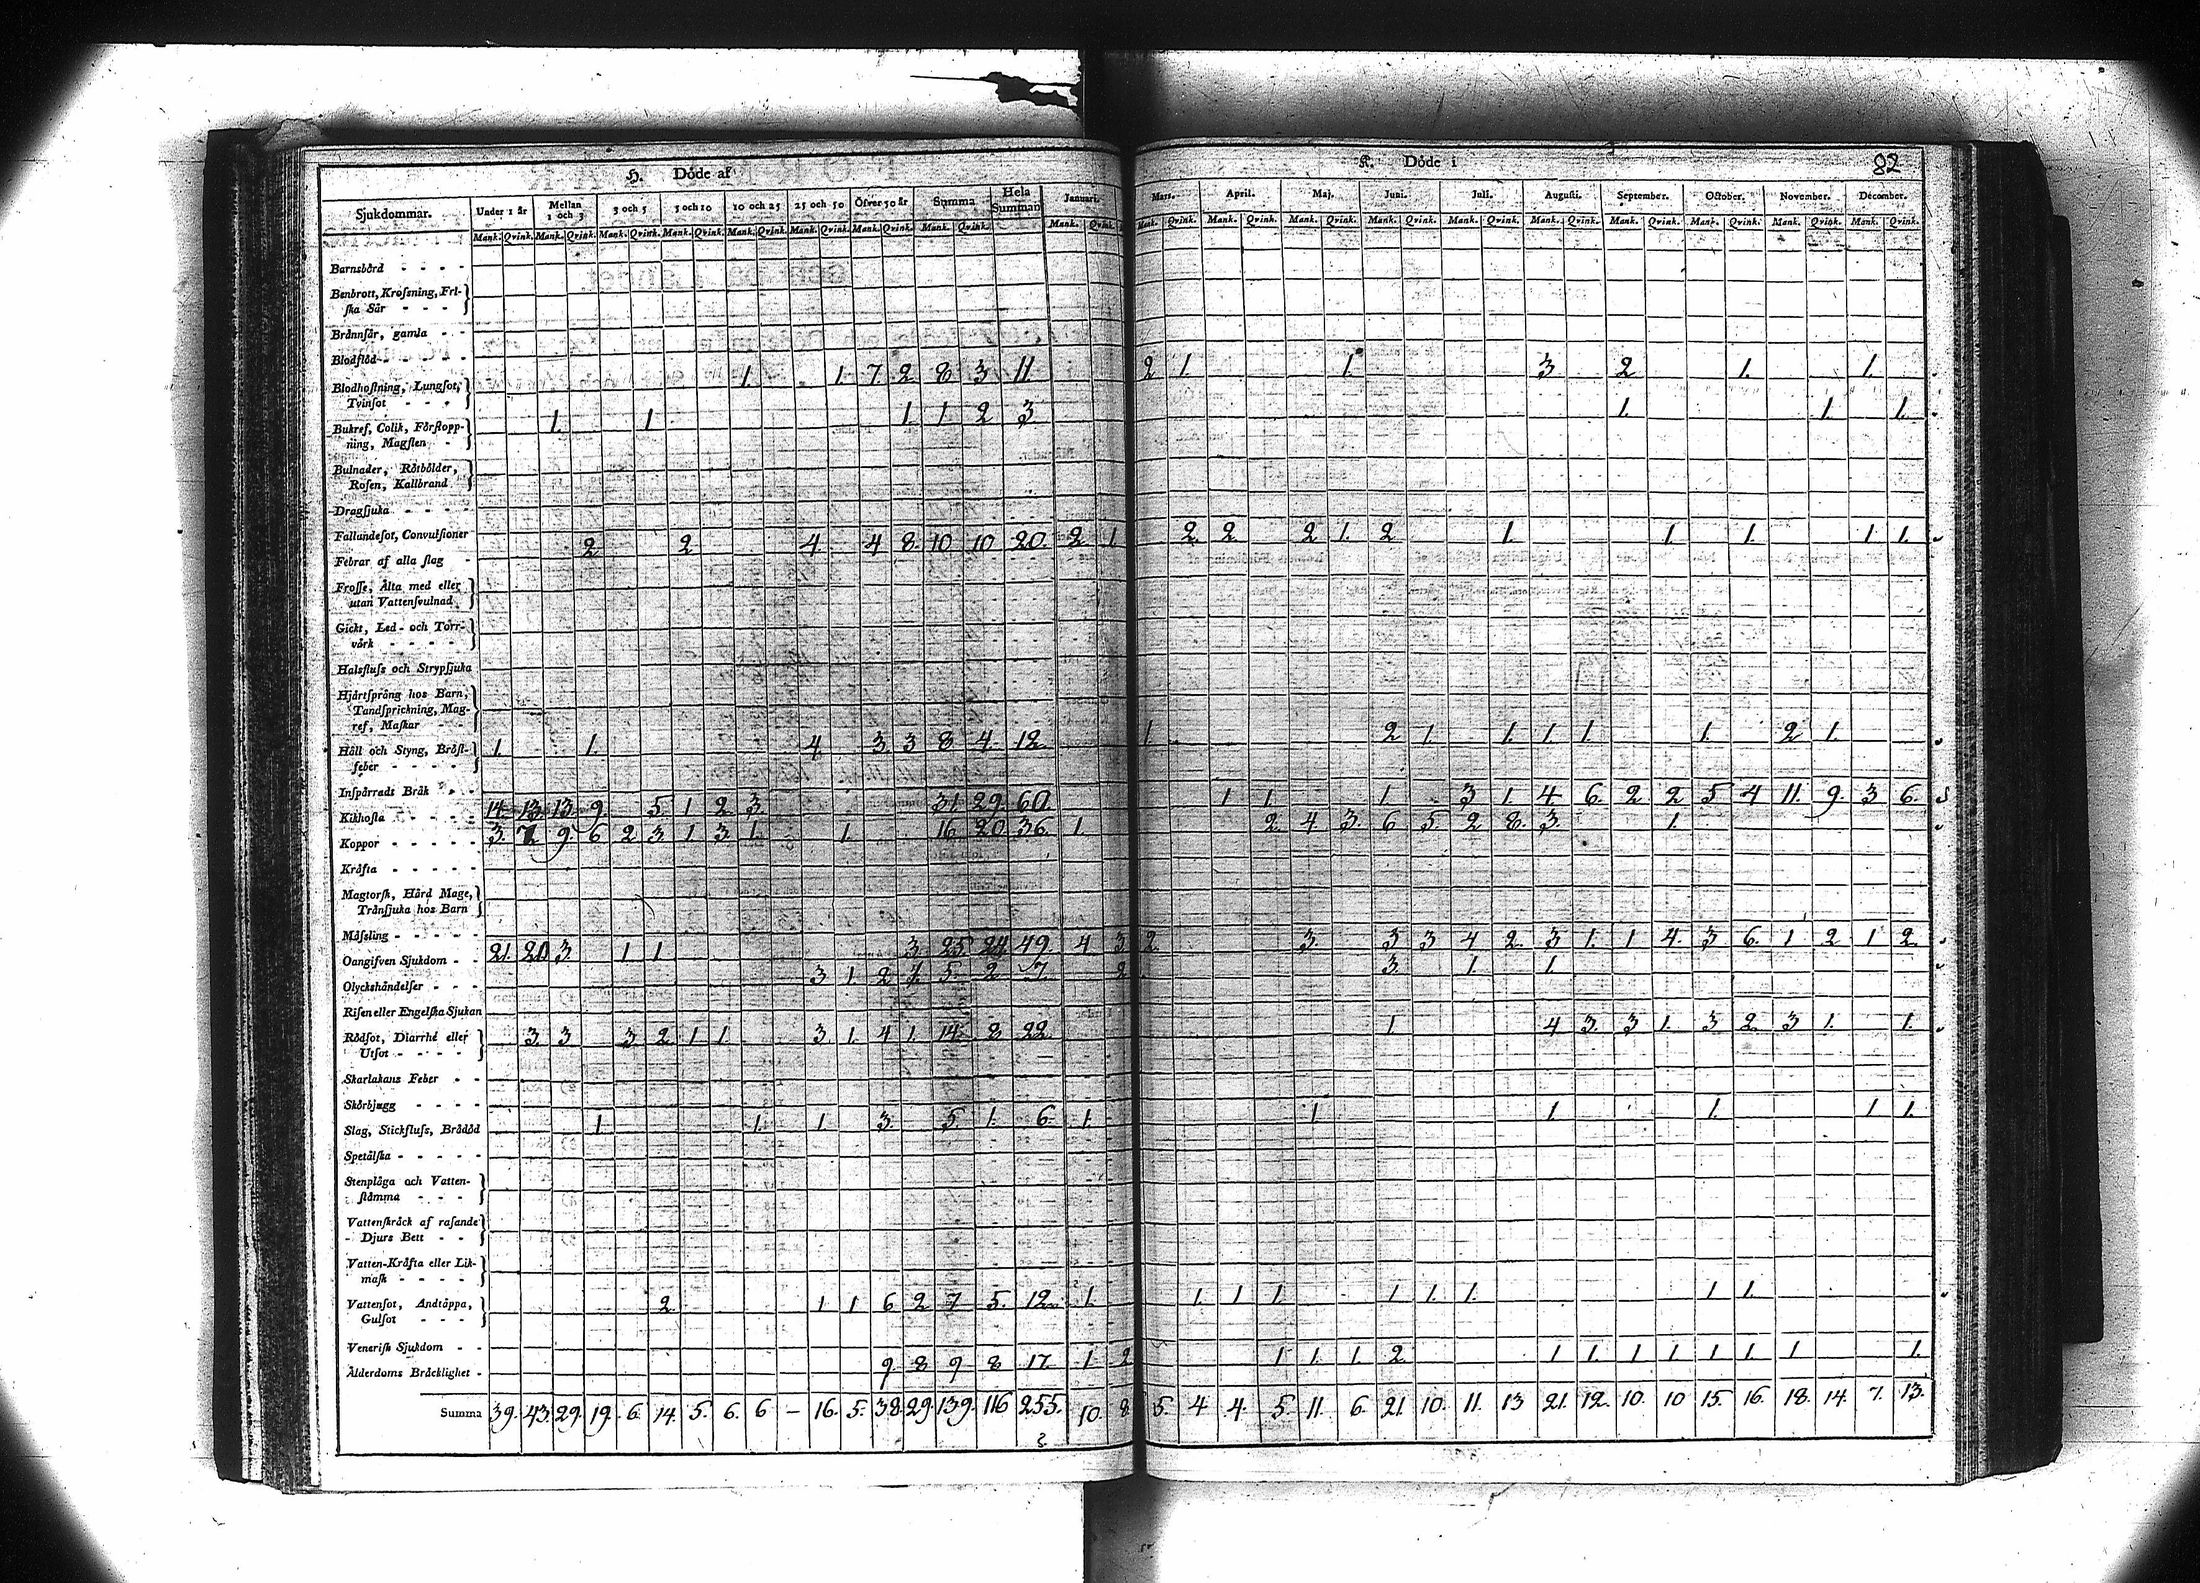 H. Döde af
K. Döde i
82
Sjukdommar. Under 1 år Mellan 1 och 3 3 och 5 5 och 10 10 och 25 25 och 50 Öfver 50 år Summa Hela Summan Januari. Mars. April. Maj. Juni. Juli. Augusti. September. October. November. December.
Mank. Qvink. Mank. Qvink. Mank. Qvink. Mank. Qvink. Mank. Qvink. Mank. Qvink. Mank. Qvink. Mank. Qvink. Mank. Qvink. Mank. Qvink. Mank. Qvink. Mank. Qvink. Mank. Qvink. Mank. Qvink. Mank. Qvink. Mank. Qvink. Mank. Qvink. Mank. Qvink. Mank. Qvink.
Barnsbörd
Benbrott, Krosning, Fri-
ska Sår
Brännsår, gamla
Blodflöd
1. 1. 7. 2. 8. 3. 11. 2 1. 1. 3 2 1. 1.
Blodhostning, Lungsot,
Tvinsot
1. 1 1. 1. 2 3 1. 1. 1.
Bukref, Colik, Förstopp-
ning, Magsten
Bulnader, Rötbölder,
Rosen, Kallbrand
Dragsjuka
Fallandesot, Convulsioner
2 2 4 4 8. 10 10 20. 2 1 2. 2. 2 1. 2 1. 1. 1. 1 1.
Febrar af alla slag
Frosse, Älta med eller
utan Vattensvulnad
Gickt, Led- och Torr-
värk
Halsfluss och Strypsjuka
Hjärtsprång hos Barn,
Tandsprickning, Mag-
ref, Maskar
1. 1. 4 3 3 8 4. 12 1 2 1. 1. 1. 1. 1. 2 1.
Håll och Styng, Bröst-
feber
Inspärradt Bråk
14. 13. 13. 9. 5 1 2. 3. 31 29. 60. 1 1. 1 3 1. 4 6. 2 2 5 4 11. 9. 3 6.
Kikhosta
3. 7 9. 6 2 3. 1 3 1. 1. 16 20 36. 1. 2. 4. 3. 6 5. 2 8. 3. 1.
Koppor
Kräfta
Magtorsk, Hård Mage,
Tränsjuka hos Barn
Mässling
21. 20 3. 1 1 3. 25 24 49. 4 3 2. 3. 3 3 4 2. 3 1. 1 4. 3 6. 1 2 1 2.
Oangifven Sjukdom
3 1. 2 5. 2 7. 2 3. 1. 1.
Olyckshändelser
Risen eller Engelska Sjukan
Rödsot, Diarrhé eller
Utsot
3. 3. 3 2 1 1. 3. 1. 4 1. 14. 8 22 1 4 3. 3 1. 3 2. 3 1. 1.
Skarlakans Feber
Skörbjugg
1. 1. 1. 3. 5 1. 6. 1. 1. 1. 1. 1 1.
Slag, Stickfluss, Brådöd
Spetälska
Stenplåga och Vatten-
stämma
Vattenskräck af rasande
Djurs Bett
Vatten-Kräfta eller Lik-
mask
2 1 1 6 2 7. 5. 12. 1. 1. 1 1. 1 1. 1. 1 1.
Vattensot, Andtäppa,
Gulsot
Venerisk Sjukdom
9. 8 9 8 17. 1 2 1 1. 1. 2 1 1. 1 1 1 1. 1 1.
Ålderdoms Bräcklighet
Summa 39. 43. 29. 19. 6. 14. 5. 6. 6 – 16. 5. 38. 29. 139. 116 255. 10. 8 5. 4 4. 5. 11. 6. 21. 10. 11. 13 21. 12. 10. 10 15. 16. 18. 14. 7. 13.